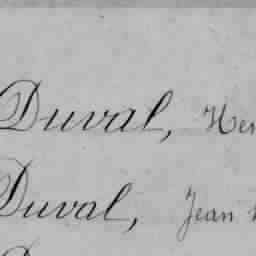 Duval, Her
Duval, Jean